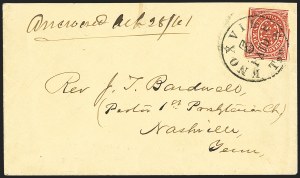 Answered Oct 28/61
KNOXVIL
Rev J. T. Bardwell
(Pastor 1st Presbyterian Ch)
Nashville,
Tenn.